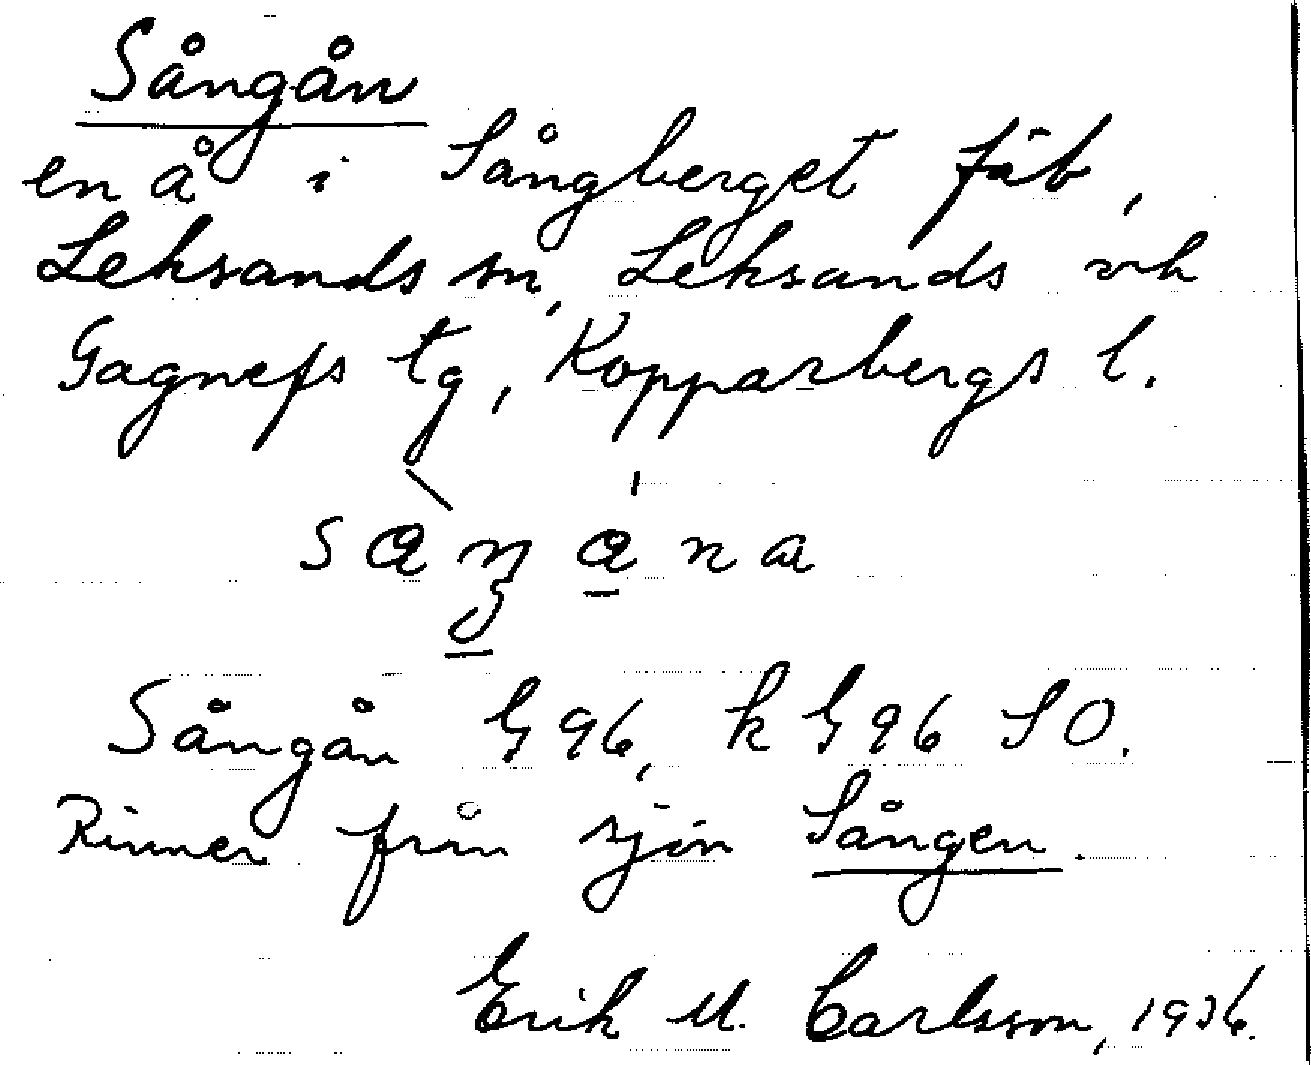 Sångån
en å i Sångberget fäb,
Leksands sn, Leksands och
Gagnefs tg, Kopparbergs l.
Sångån G 96, k G 96 SO.
Rinner från sjön Sången.
Erik M. Carlsson, 1936.